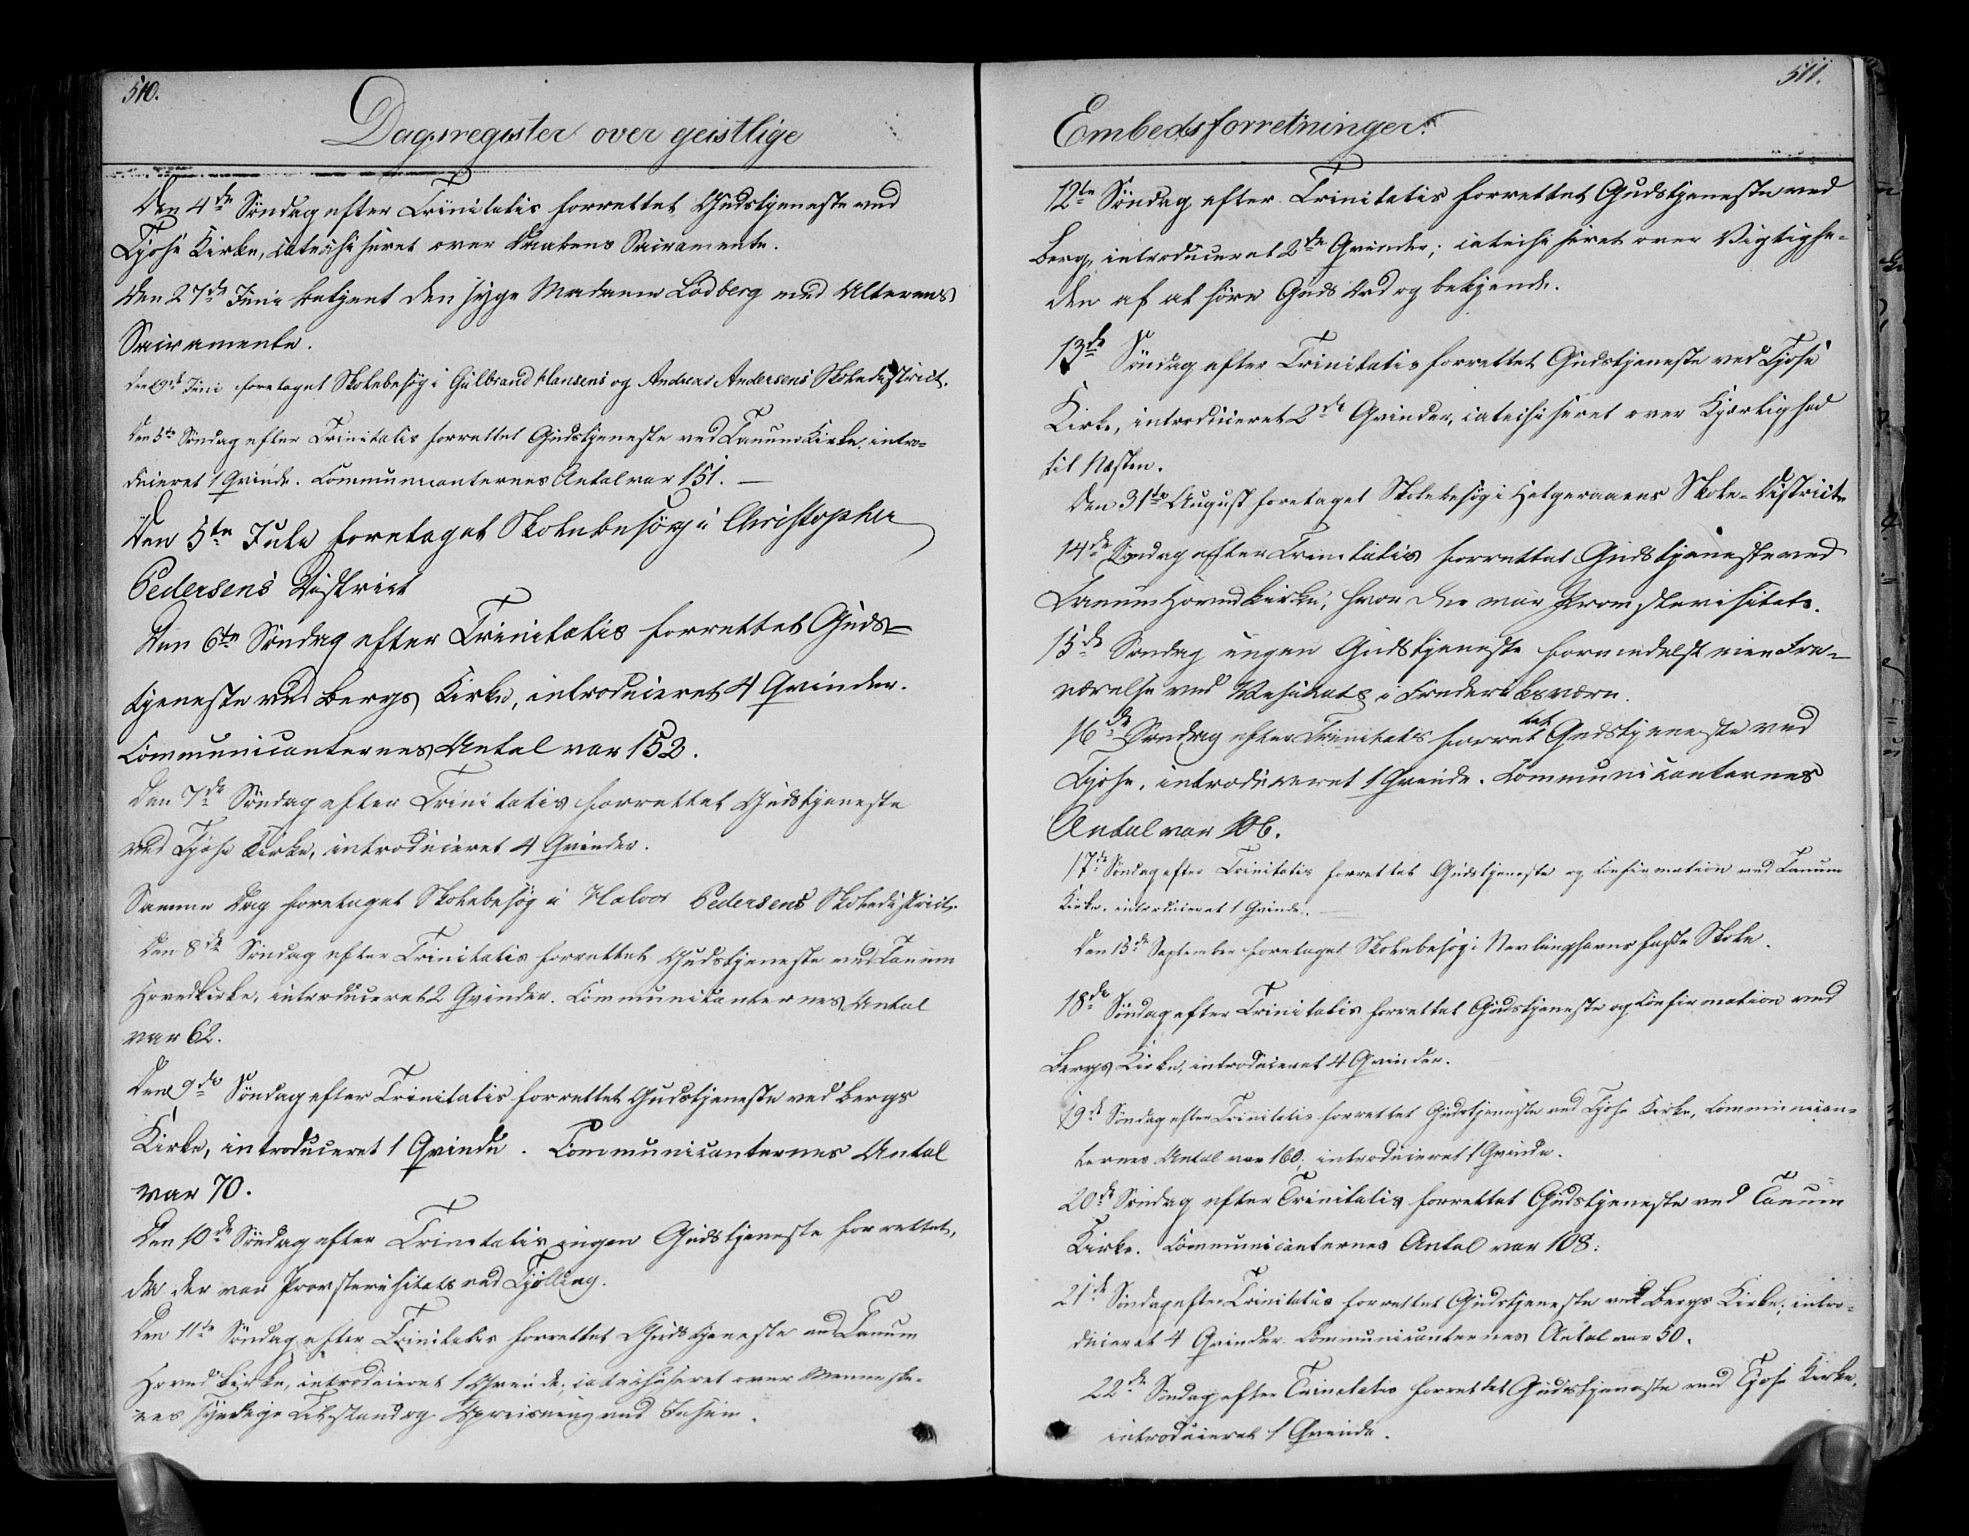 510.
Dagsregister over geistlige
Den 4de Søndag efter Trinitatis forrettet Gudstjeneste ved
Tjose Kirke, catechiseret over Daabens Sacramente.
Den 27de Juni betjent den syge Madame Lodberg med Alterens
Sacramente.
Den 29de Juni foretaget Skolebesøg i Gulbrand Hansens og Andreas Andersens Skoledistrict.
Den 5te Søndag efter Trinitatis forrettet Gudstjeneste ved Tanum Kirke, intro-
duceret 1 Qvinde. Communicanternes Antal var 151. —
Den 5te Jule foretaget Skolebesøg i Christopher
Pedersens District
Den 6te Søndag efter Trinitatis forrettet Guds-
tjeneste ved Bergs Kirke, introduceret 4 Qvinder.
Communicanternes Antal var 153.
Den 7de Søndag efter Trinitatis forrettet Gudstjeneste
ved Tjose Kirke, introduceret 4 Qvinder.
Samme Dag foretaget Skolebesøg i Halvor Pedersens Skoledistrict.
Den 8de Søndag efter Trinitatis forrettet Gudstjeneste ved Tanum
Hovedkirke, introduceret 2 Qvinder. Communicanternes Antal
var 62.
Den 9de Søndag efter Trinitatis forrettet Gudstjeneste ved Bergs
Kirke, introduceret 1 Qvinde. Communicanternes Antal
var 70.
Den 10de Søndag efter Trinitatis ingen Gudstjeneste forrettet,
da der var Provstevisitats ved Tjølling.
Den 11te Søndag efter Trinitatis forrettet Gudstjeneste ved Tanum
Hovedkirke, introduceret 1 Qvinde, catechiseret over Menneske-
nes syndige Tilstand og Opreisning ved Jesum.
511.
Embedsforretninger.
12te Søndag efter Trinitatis forrettet Gudstjeneste ved
Berg, introduceret 2de Qvinder; catechiseret over Vigtighe-
den af at høre Guds Ord og bekjende.
13de Søndag efter Trinitatis forrettet Gudstjeneste ved Tjose
Kirke, introduceret 2de Qvinder, catechiseret over Kjærlighed
til Næsten.
Den 31te August foretaget Skolebesøg i Helgeraaens Skole-District
14de Søndag efter Trinitatis forrettet Gudstjeneste ved
Tanum Hovedkirke, hvor der var Provstevisitats.
15de Søndag ingen Gudstjeneste formedelst min Fra-
værelse ved Visitats i Frederiksværn.
16de Søndag efter Trinitatis forrettet Gudstjeneste ved
Tjose, introduceret 1 Qvinde. Communicanternes
Antal var 106.
17de Søndag efter Trinitatis forrettet Gudstjeneste og Confirmation ved Tanum
Kirke, introduceret 1 Qvinde.
Den 15de September foretaget Skolebesøg i Nevlunghavns faste Skole.
18de Søndag efter Trinitatis forrettet Gudstjeneste og Confirmation ved
Bergs Kirke, introduceret 4 Qvinder.
19de Søndag efter Trinitatis forrettet Gudstjeneste ved Tjose Kirke, Communican-
ternes Antal var 160, introduceret 1 Qvinde.
20de Søndag efter Trinitatis forrettet Gudstjeneste ved Tanum
Kirke. Communicanternes Antal var 108.
21de Søndag efter Trinitatis forrettet Gudstjeneste ved Bergs Kirke; intro-
duceret 4 Qvinder. Communicanternes Antal var 50.
22de Søndag efter Trinitatis forrettet Gudstjeneste ved Tjose Kirke,
introduceret 1 Qvinde.